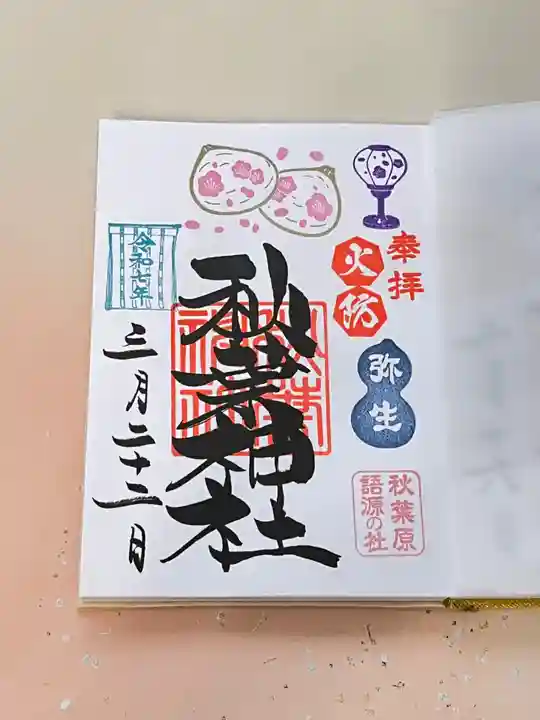 奉拝
火防
弥生
秋葉原
語源の社
秋葉神社
秋葉
神社
令和七年
三月二十二日